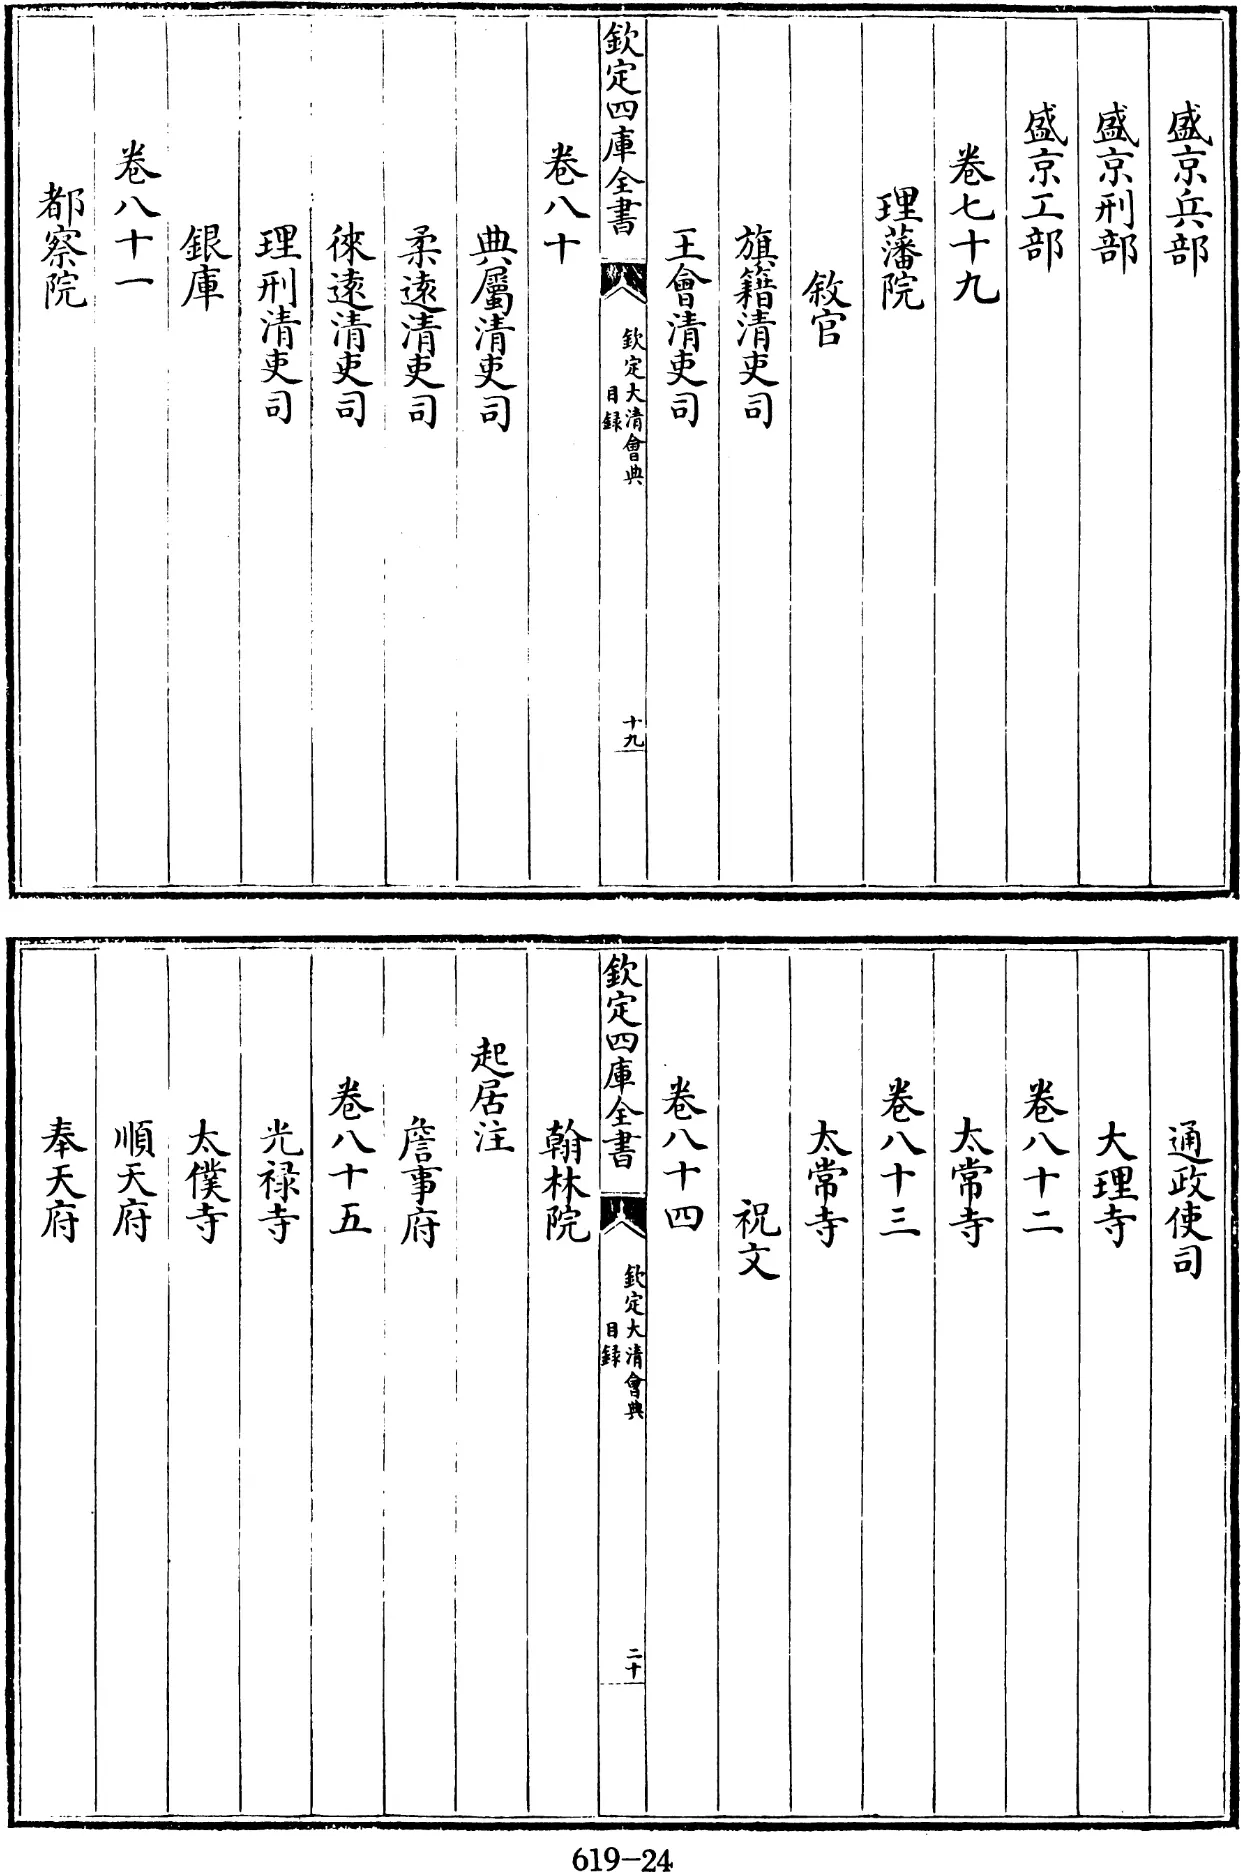 盛京兵部
盛京刑部
盛京工部
卷七十九
理藩院
敘官
旗籍清吏司
王會清吏司
欽定四庫全書
欽定大清會典
目録
十九
卷八十
典屬清吏司
柔遠清吏司
徠遠清吏司
理刑清吏司
銀庫
卷八十一
都察院
通政使司
大理寺
卷八十二
太常寺
卷八十三
太常寺
祝文
卷八十四
欽定四庫全書
欽定大清會典
目録
二十
翰林院
起居注
詹事府
卷八十五
光禄寺
太僕寺
順天府
奉天府
619-24